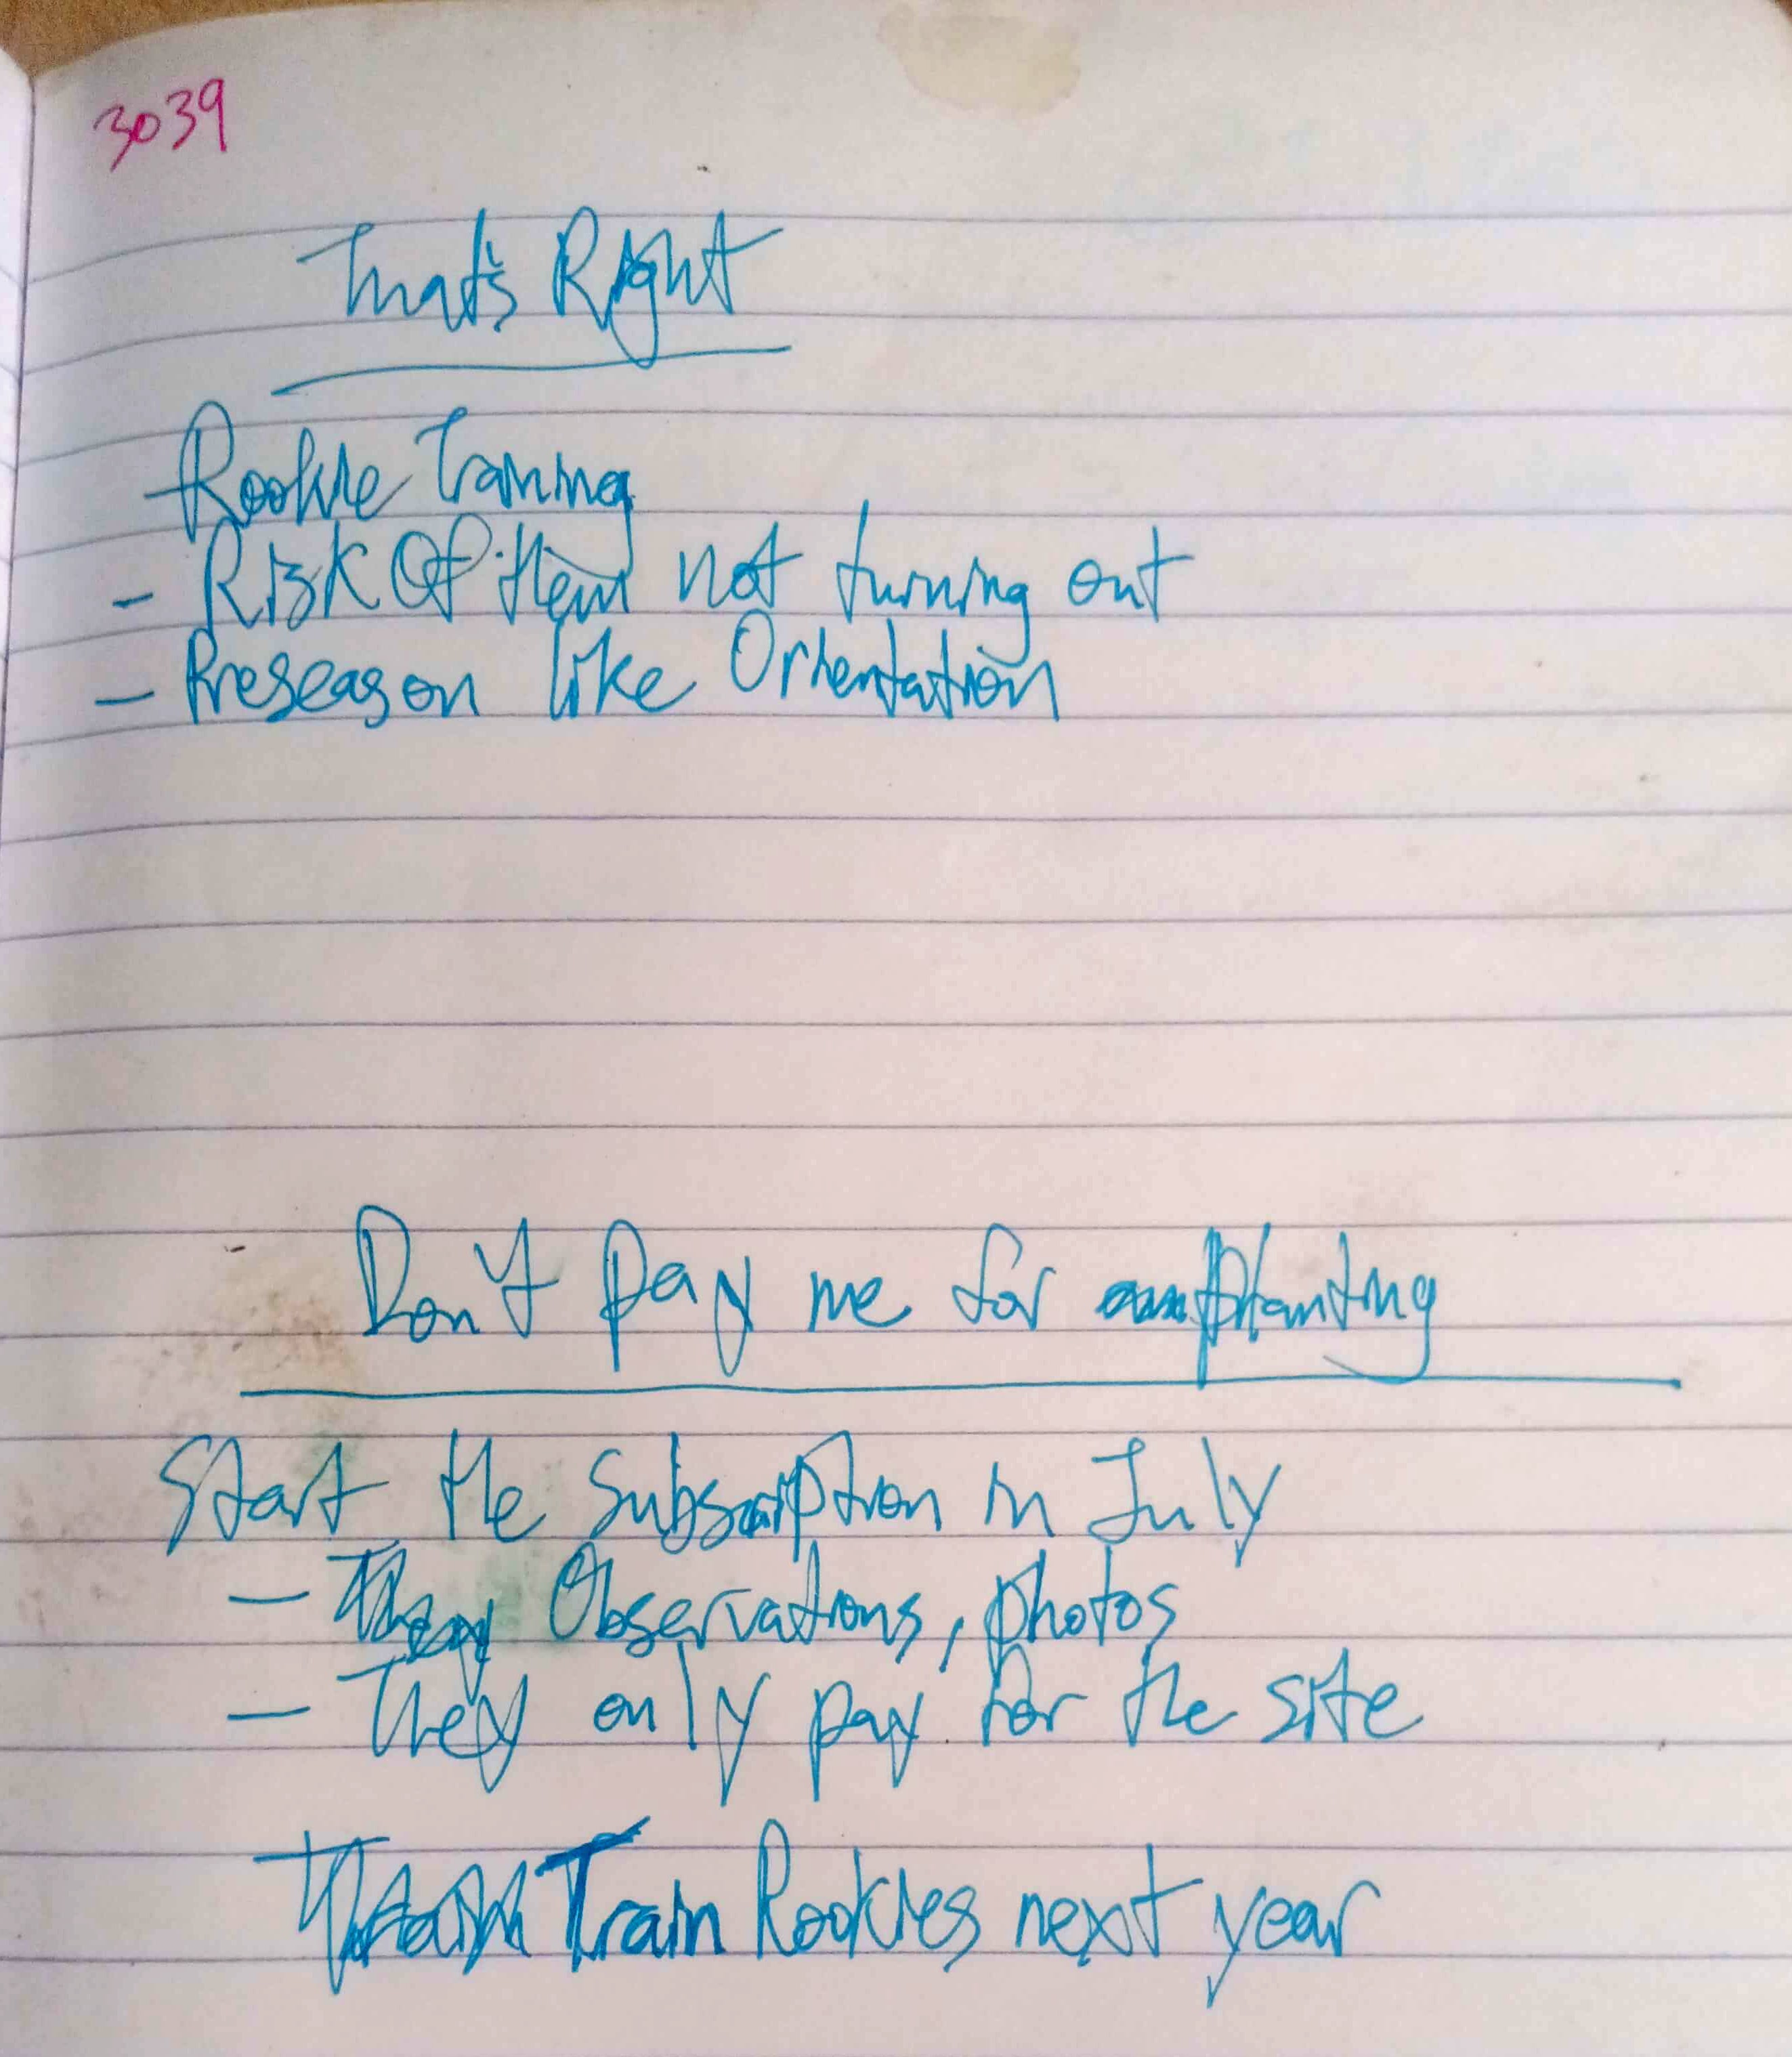 3039
That's Right
Rookie Training
- Risk Of them not turning out
- Preseason like Orientation
Don't pay me for planting
Start the Subscription in July
- Observations, photos
- They only pay for the site
Train Rookies next year